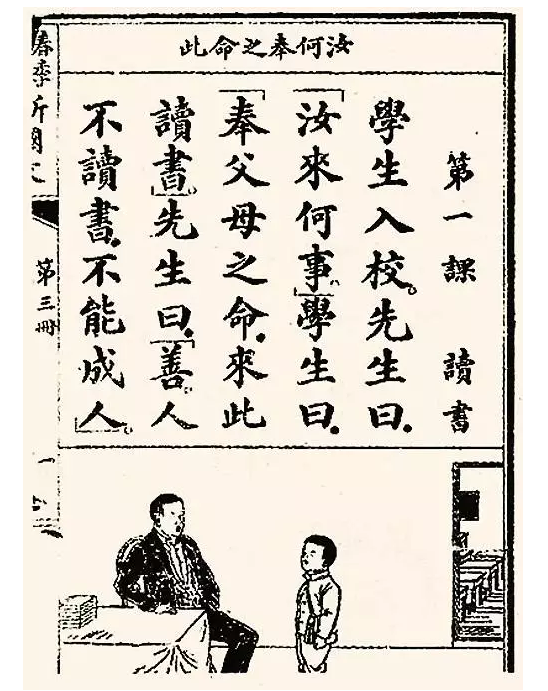 汝何奉之命此
第一課 讀書
學生入校。先生曰．
「汝來何事。」學生曰．
「奉父母之命．來此
讀書。」先生曰．「善。人
不讀書．不能成人。」
春季新國文
第三冊
一